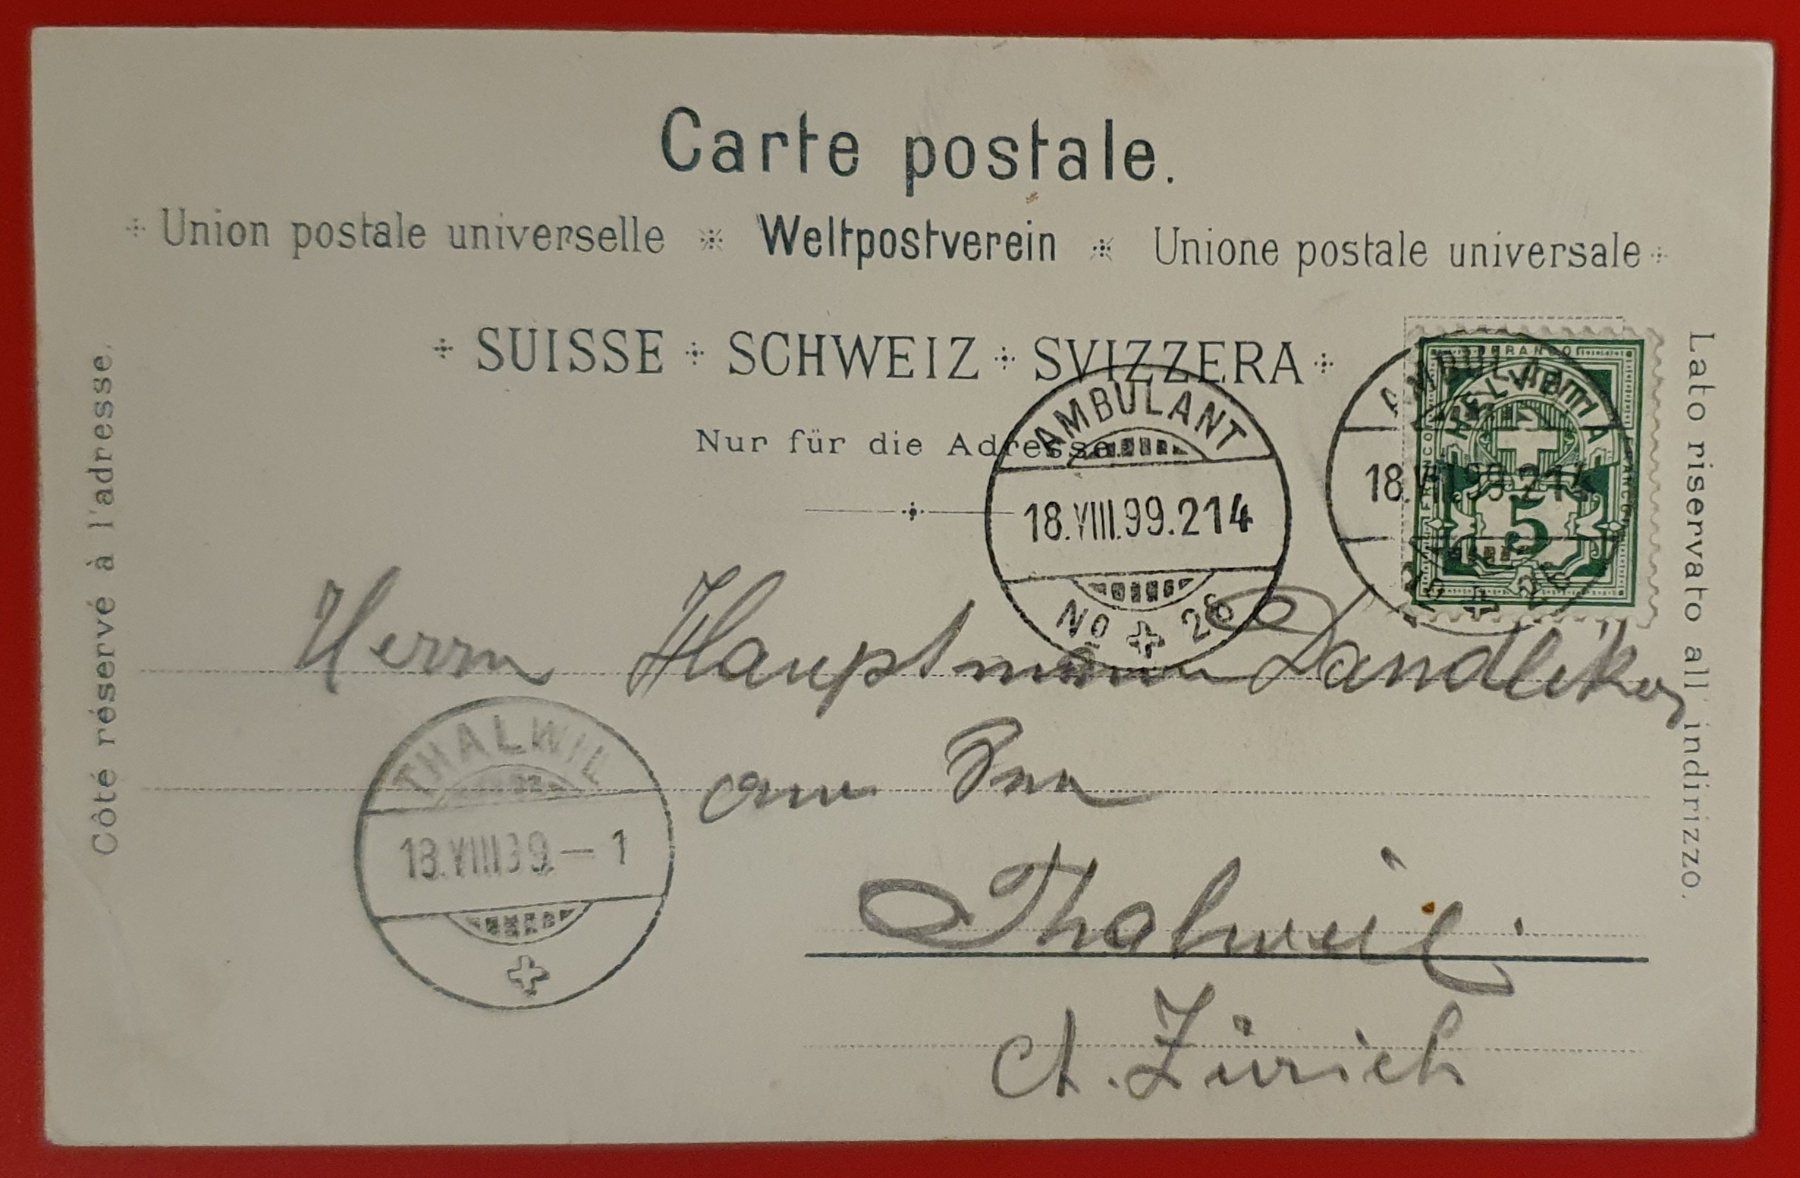 Carte postale.
Union postale universelle Weltpostverein Unione postale universale
SUISSE SCHWEIZ SVIZZERA
Nur für die Adresse.
Côté réservé à l'adresse.
Lato riservato all' indirizzo.
AMBULANT
18.VIII.99.214
No 26
AMBULANT
18.VIII.99.214
No 26
FRANCO
HELVETIA
FRANCO
FRANCO
5
Herrn Hauptmann Dandliker
THALWIL
18.VIII 99.–1
Thalweil.
ct. Zürich